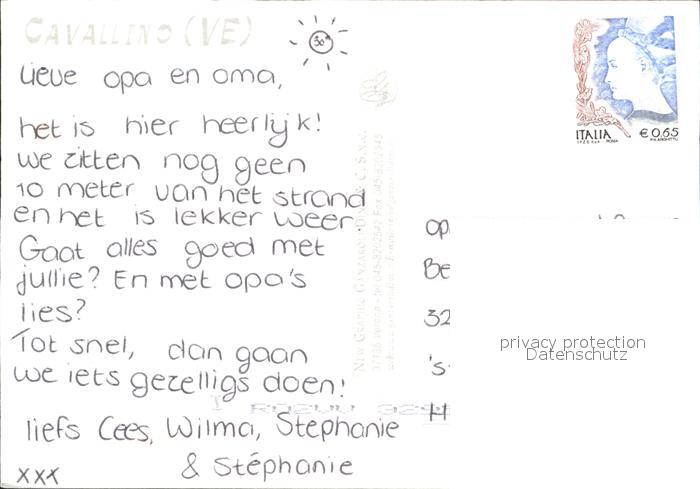 CAVALLINO (VE)
30°
lieve opa en oma,
het is hier heerlijk!
we zitten nog geen
10 meter van het strand
en het is lekker weer
Gaat alles goed met
jullie? En met opa's
lies?
Tot snel, dan gaan
we iets gezelligs doen!
liefs Cees, Wilma, Stephanie
& Stéphanie
xxx
ITALIA € 0,65
op
Be
32
's
H
privacy protection
Datenschutz